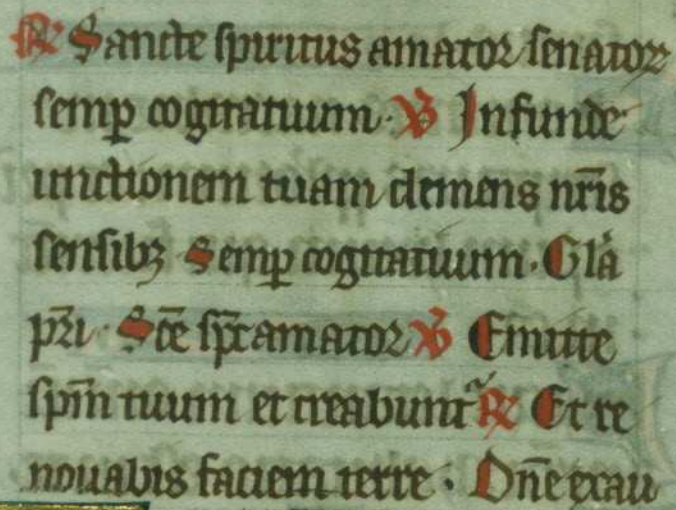 ℟ Sancte spiritus amator senatoꝝ
semꝑ cogitatuum · ℣ Infunde
unctionem tuam clemens nr̄is
sensibꝫ Semꝑ cogitatuum · Gl̄a
pr̄i · Sc̄e sp̄c amator ℣ Emitte
sp̄m tuum et creabunt᷑ ℟ Et re
novabis faciem terre · Dn̄e exau